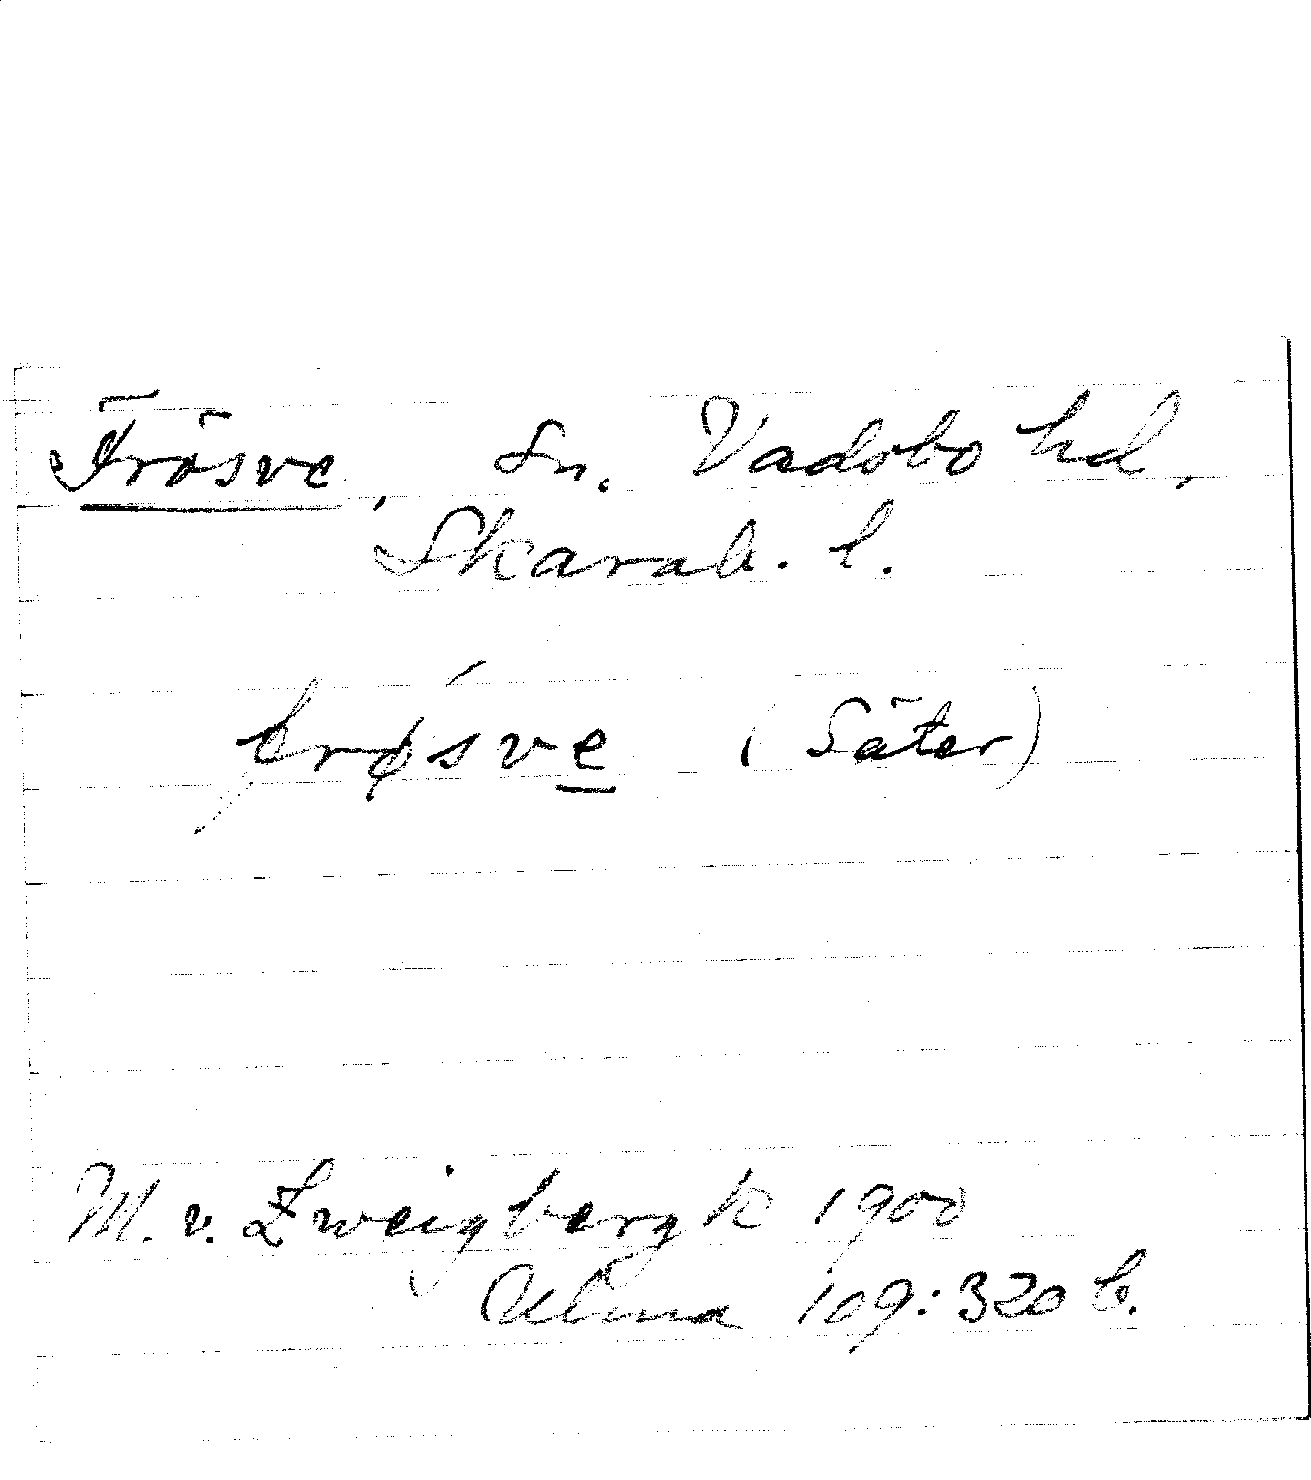 Frösve, Sn. Vadsbo hd,
Skarab. l.
frø´sve (Säter)
M. v. Zweigbergk 1900
Ulma 109:320 b.